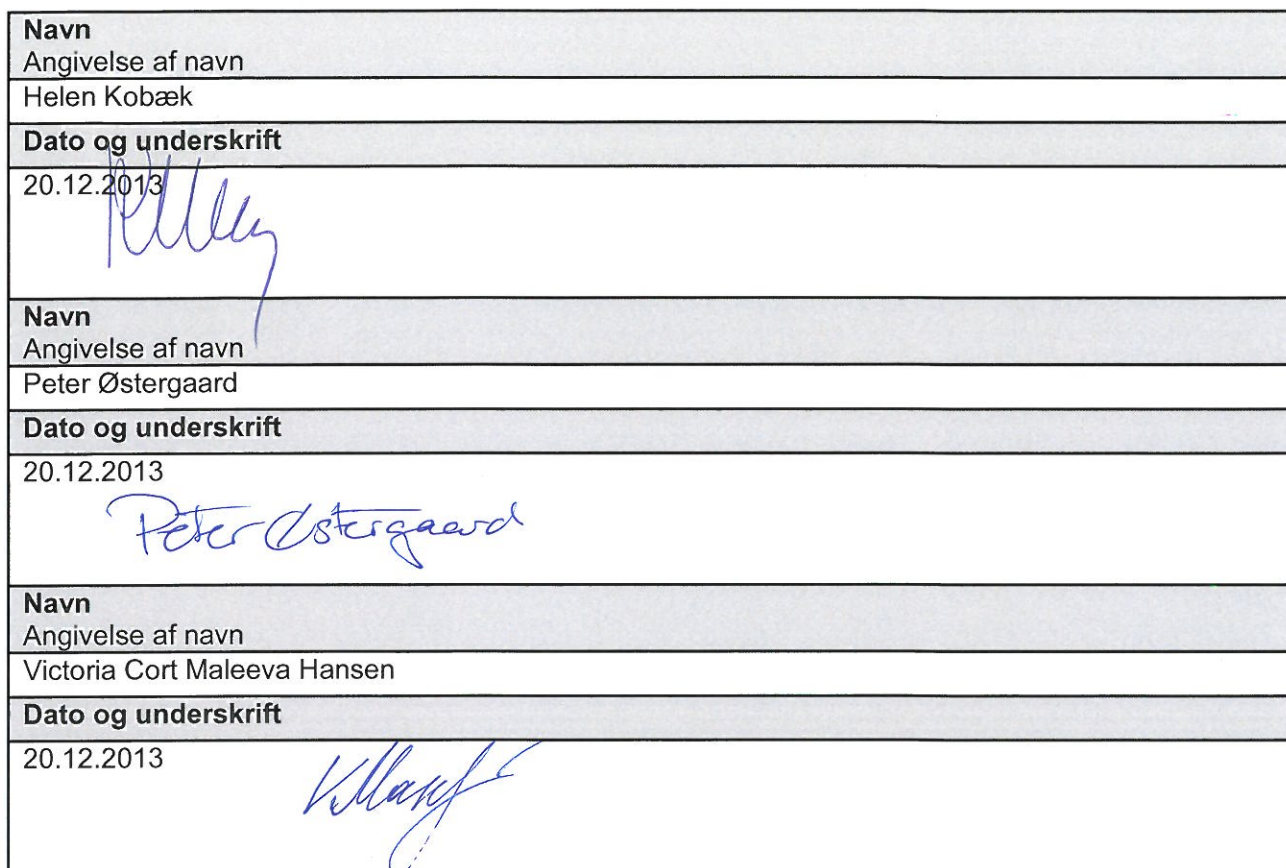 Navn
Angivelse af navn
Helen Kobæk
Dato og underskrift
20.12.2013
Navn
Angivelse af navn
Peter Østergaard
Dato og underskrift
20.12.2013
Peter Østergaard
Navn
Angivelse af navn
Victoria Cort Maleeva Hansen
Dato og underskrift
20.12.2013